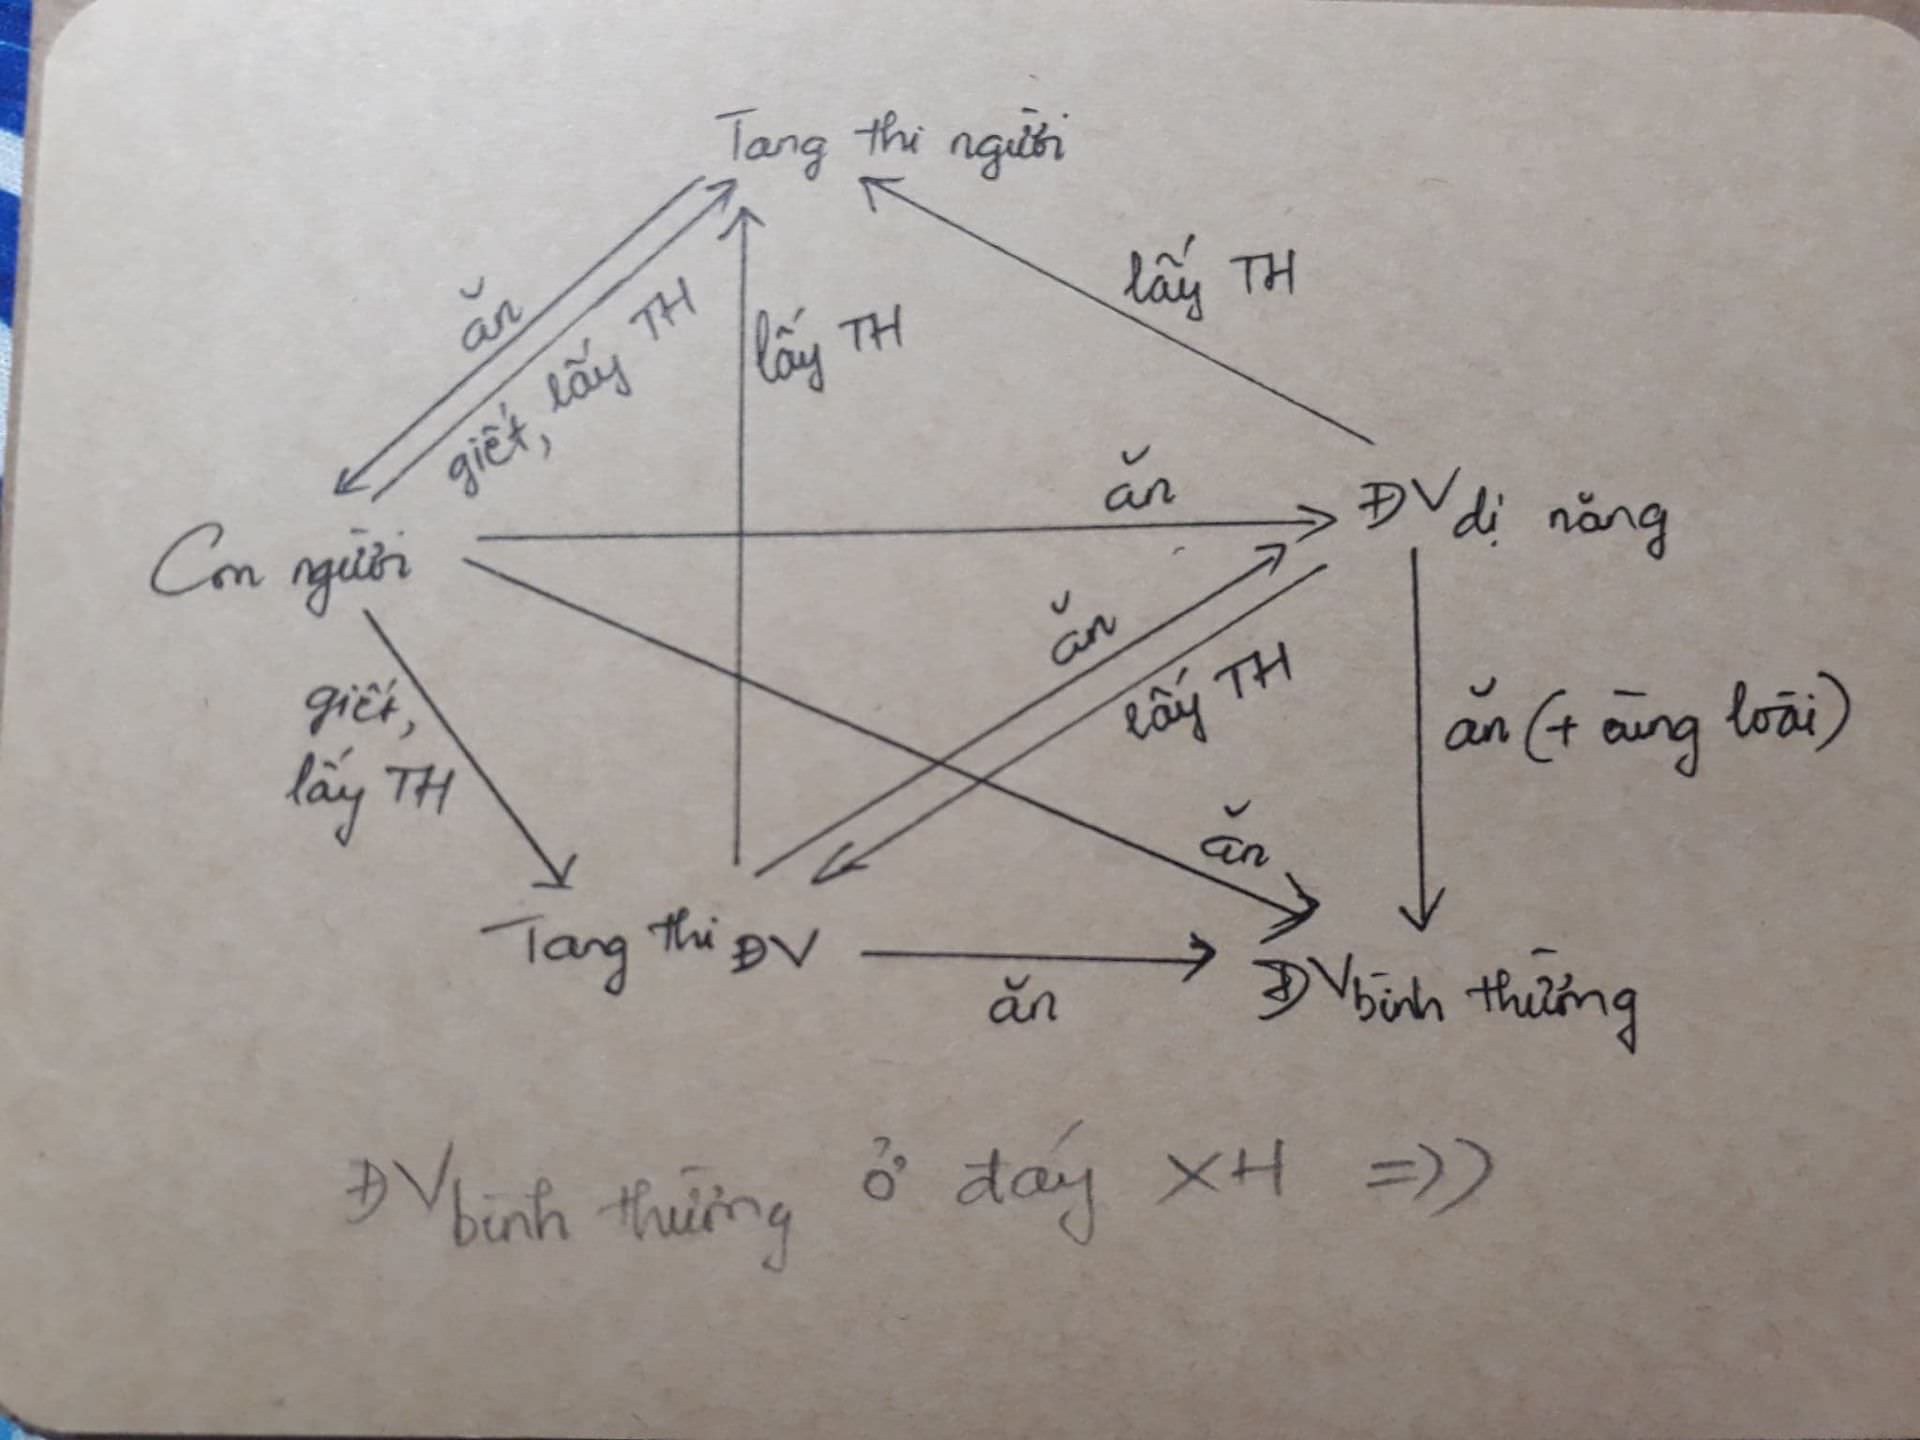 Tang thi người
lấy TH
ăn
giết, lấy TH
lấy TH
ăn
ĐV dị năng
Con người
ăn
lấy TH
giết,
lấy TH
ăn (+ cùng loài)
ăn
Tang thi ĐV
ăn
ĐV bình thường
ĐV bình thường ở đáy XH =))